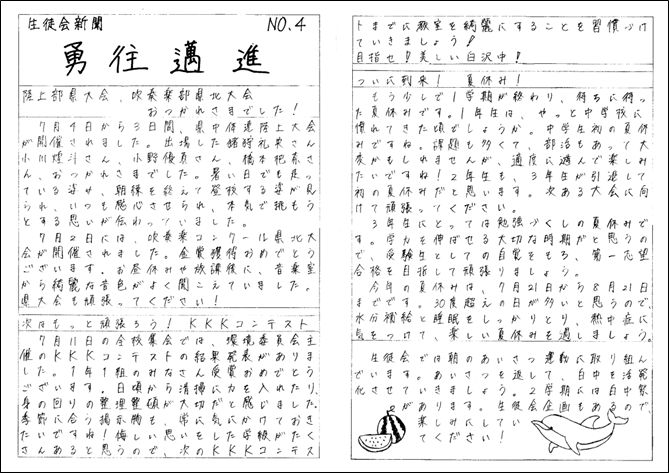 生徒会新聞 NO.4
勇往邁進
陸上部県大会、吹奏楽部県北大会
おつかれさまでした!
7月4日から3日間、県中体連陸上大会
が開催されました。出場した
小川煌斗さん、小野優真さん、橋本
ん、おつかれさまでした。暑い日でも走っ
ている姿や、朝練を終えて登校する姿が見
られ、いつも感心させられ、本気で挑もう
とする思いが伝わっていました。
7月2日には、吹奏楽コンクール県北大
会が開催されました。金賞獲得おめでとう
ございます。お昼休みや放課後に、音楽室
から綺麗な音色がよく聞こえていました。
県大会も頑張ってください!
次はもっと頑張ろう! KKKコンテスト
7月11日の全校集会では、環境委員会主
催のKKKコンテストの結果発表がありま
した。1年1組のみなさん受賞おめでとう
ございます。日頃から清掃に力を入れたり、
身の回りの整理整頓が大切だと感じました。
季節に合う掲示物も、常に気にかけておき
たいですね!悔しい思いをした学級がたく
さんあると思うので、次のKKKコンテス
トまでに教室を綺麗にすることを習慣づけ
ていきましょう!
目指せ!美しい白沢中!
ついに到来! 夏休み!
もう少しで1学期が終わり、待ちに待っ
た夏休みです。1年生は、やっと中学校に
慣れてきた頃でしょうか。中学生初の夏休
みですね。課題も多くて、部活もあって大
変かもしれませんが、適度に遊んで楽しみ
たいですね!2年生も、3年生が引退して
初の夏休みだと思います。次ある大会に向
けて頑張ってください。
3年生にとっては勉強づくしの夏休みで
す。学力を伸ばせる大切な時期だと思うの
で、受験生としての自覚をもち、第一志望
合格を目指して頑張りましょう。
今年の夏休みは、7月21日から8月21日
までです。30度超えの日が多いと思うので、
水分補給と睡眠をしっかりとり、熱中症に
気をつけて、楽しい夏休みを過しましょう。
生徒会では朝のあいさつ運動に取り組ん
でいます。あいさつを返して、白中を活発
化させていきましょう。2学期には白中祭
があります。生徒会企画もあるので、
楽しみにしてい
てください!